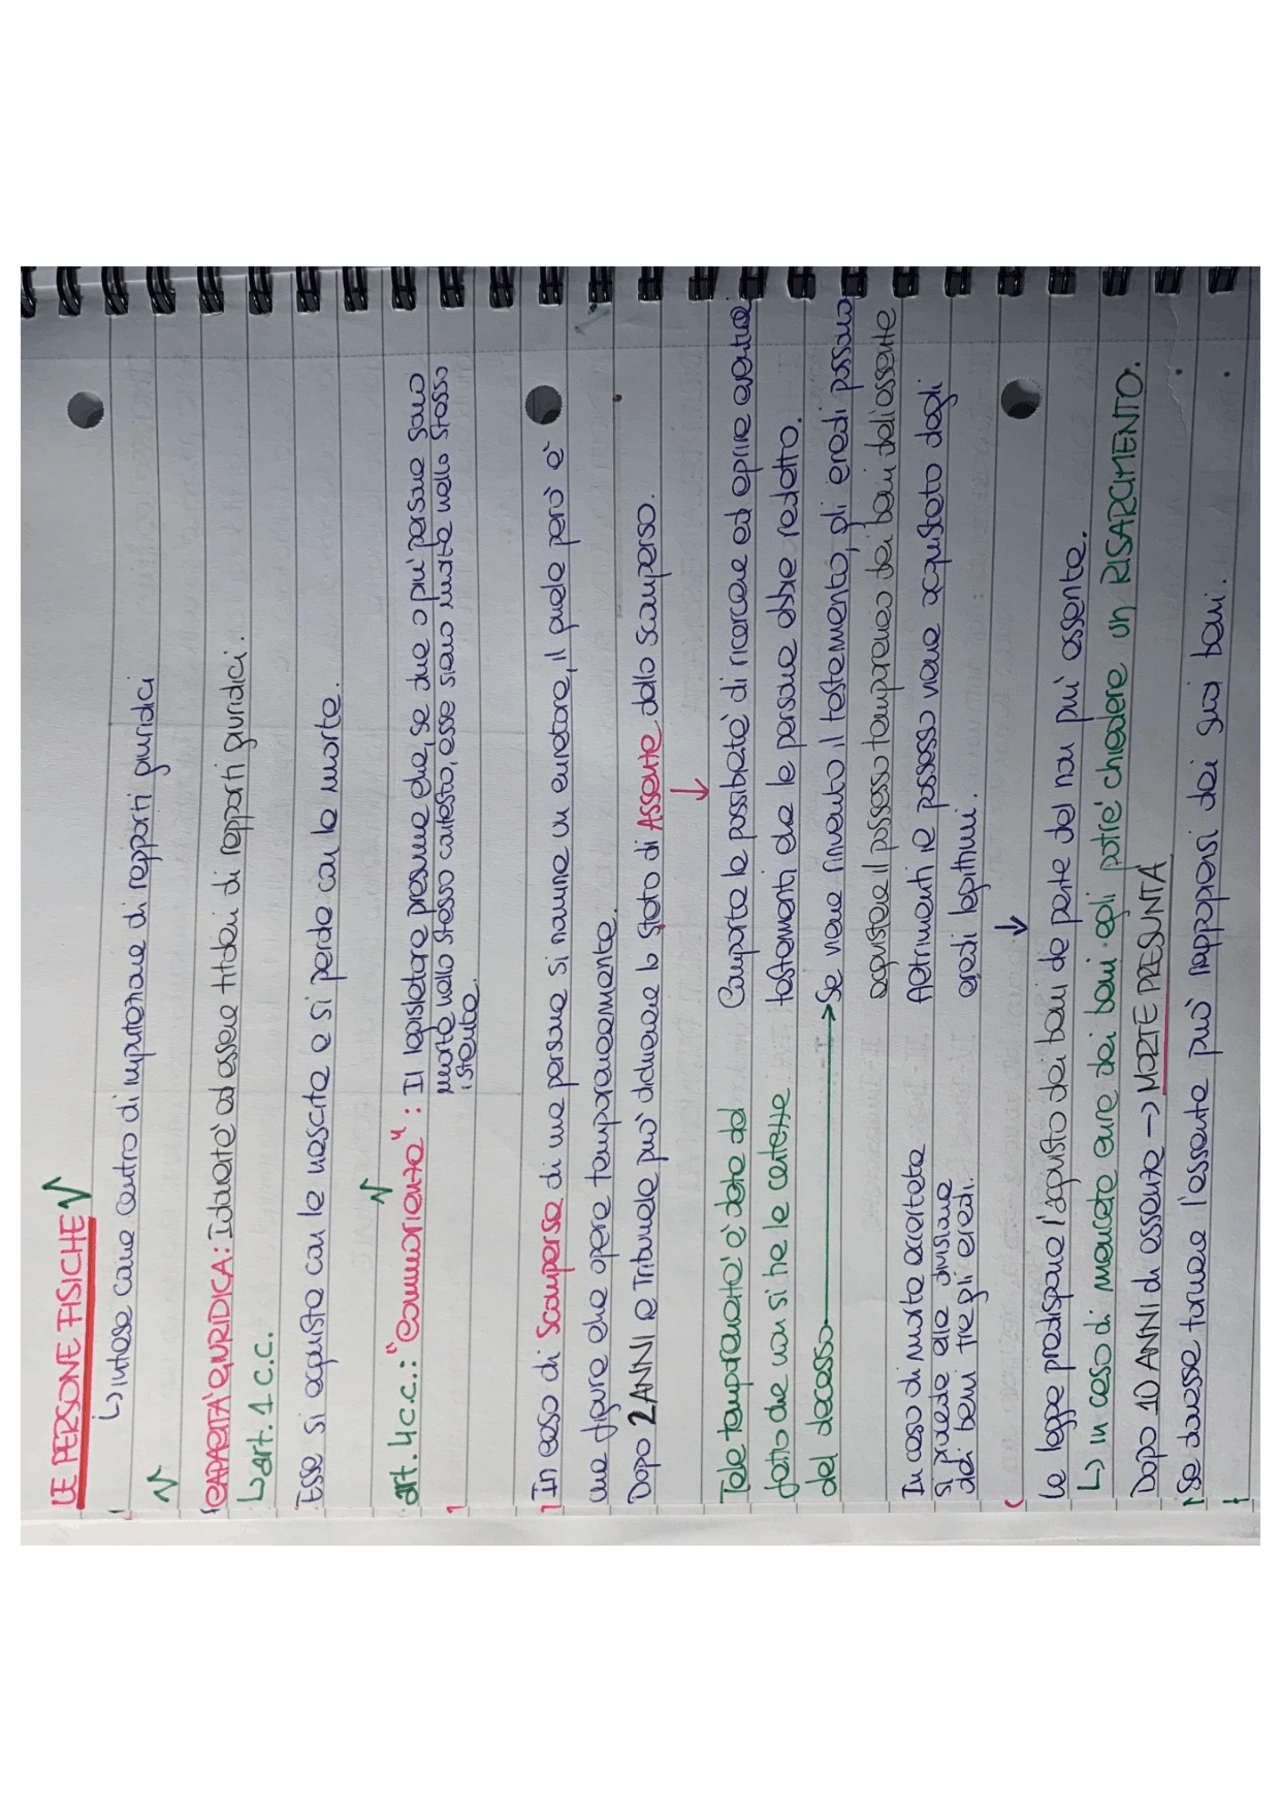 LE PERSONE FISICHE
↳ intese come centro di imputazione di rapporti giuridici
CAPACITA' GIURIDICA: Idoneità ad essere titolari di rapporti giuridici.
↳ art. 1 c.c.
Esse si acquista con la nascita e si perde con la morte.
art. 4 c.c.: "Commorienza": Il legislatore presume che, se due o più persone sono
morte nello stesso contesto, esse siano morte nello stesso
istante.
In caso di Scomparsa di una persona si nomina un curatore, il quale però è
una figura che opera temporaneamente.
Dopo 2 ANNI il Tribunale può dichiarare lo stato di Assente dello scomparso.
↓
Tale temporaneità è data dal
fatto che non si ha la certezza
del decesso
Comporta la possibilità di ricercare ed aprire eventuali
testamenti che la persona abbia redatto.
→ Se viene rinvenuto il testamento, gli eredi possono
acquistare il possesso temporaneo dei beni dell'assente
Altrimenti il possesso viene acquistato dagli
eredi legittimi.
In caso di morte accertata
si procede alla divisione
dei beni tra gli eredi.
↓
La legge predispone l'acquisto dei beni da parte del non più assente.
↳ in caso di mancata cura dei beni egli potrà chiedere un RISARCIMENTO.
Dopo 10 ANNI di assenza → MORTE PRESUNTA
Se dovesse tornare l'assente può riappropiersi dei suoi beni.